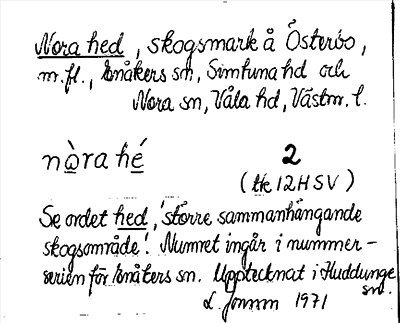 Nora hed, skogsmark å Österbo,
m.fl., Enåkers sn, Simtuna hd och
Nora sn, Våla hd, Västm. l.
nòra hé 2
(tk 12H SV)
Se ordet hed, 'större sammanhängande
skogsområde'. Numret ingår i nummer-
serien för Enåkers sn. Upptecknat i Huddunge
sn.
1971